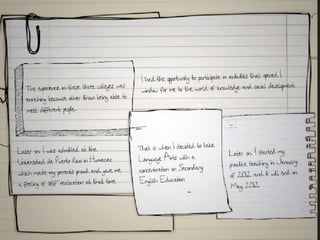 The experience in these three colleges was
enriching because other than being able to
meet different people.
I had the opportunity to participate in activities that opened a
window for me to the world of knowledge and social development.
Later on I was admitted at the
Universidad de Puerto Rico in Humacao
which made my parents proud and gave me
a feeling of self realization at that time.
That is when I decided to take
Language Arts with a
concentration in Secondary
English Education
Later on I started my
practice teaching in January
of 2012 and it will end in
May 2012.